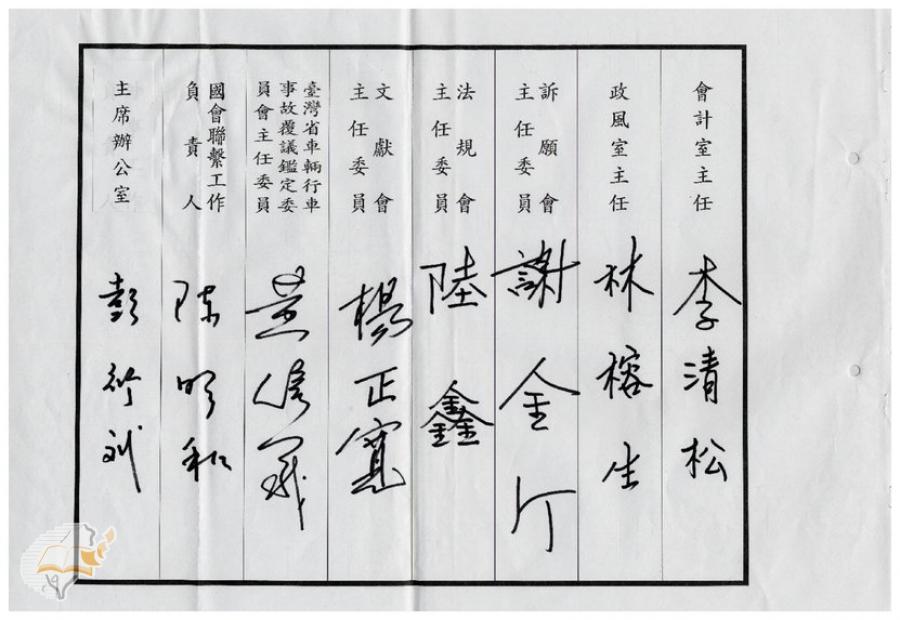 會計室主任
李清松
政風室主任
林榕生
訴願會
主任委員
謝金汀
法規會
主任委員
陸鑫
文獻會
主任委員
楊正寬
臺灣省車輛行車
事故覆議鑑定委
員會主任委員
國會聯繫工作
負責人
陳明和
主席辦公室
彭